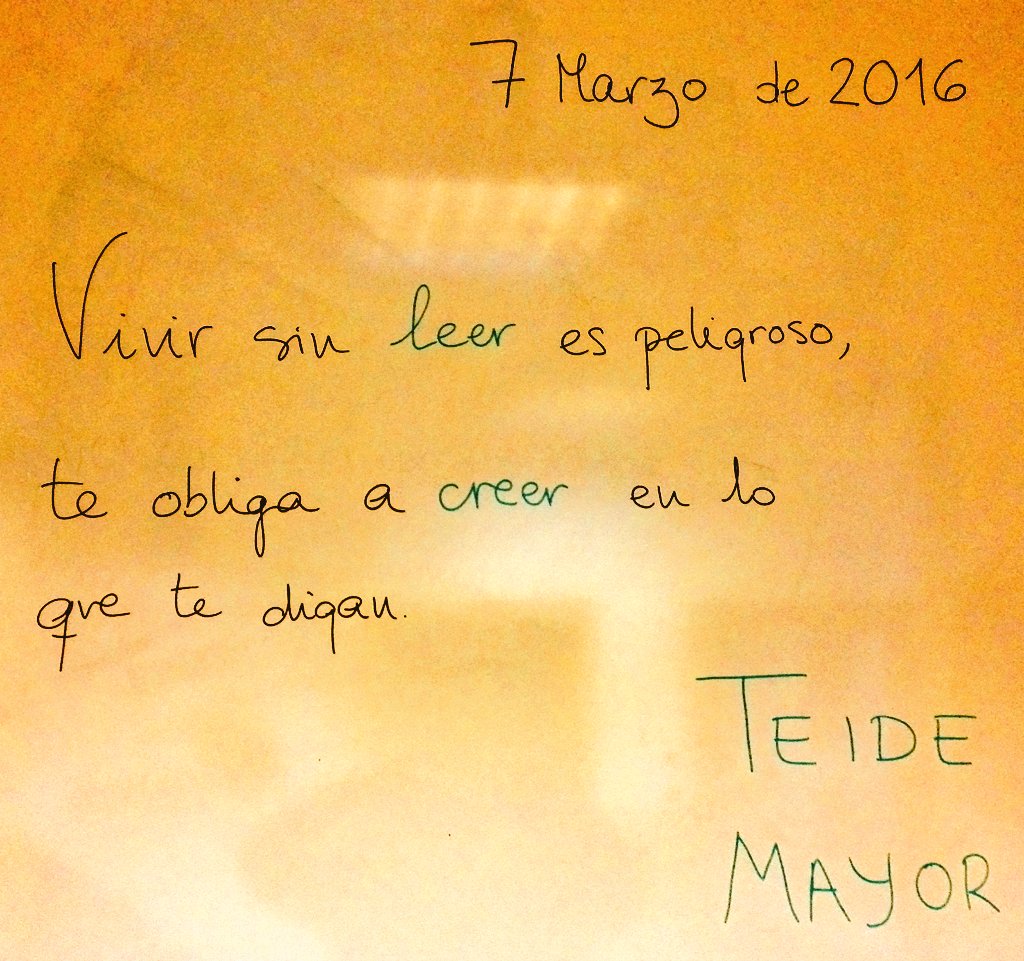 7 Marzo de 2016
Vivir sin leer es peligroso,
te obliga a creer en lo
que te digan.
TEIDE
MAYOR